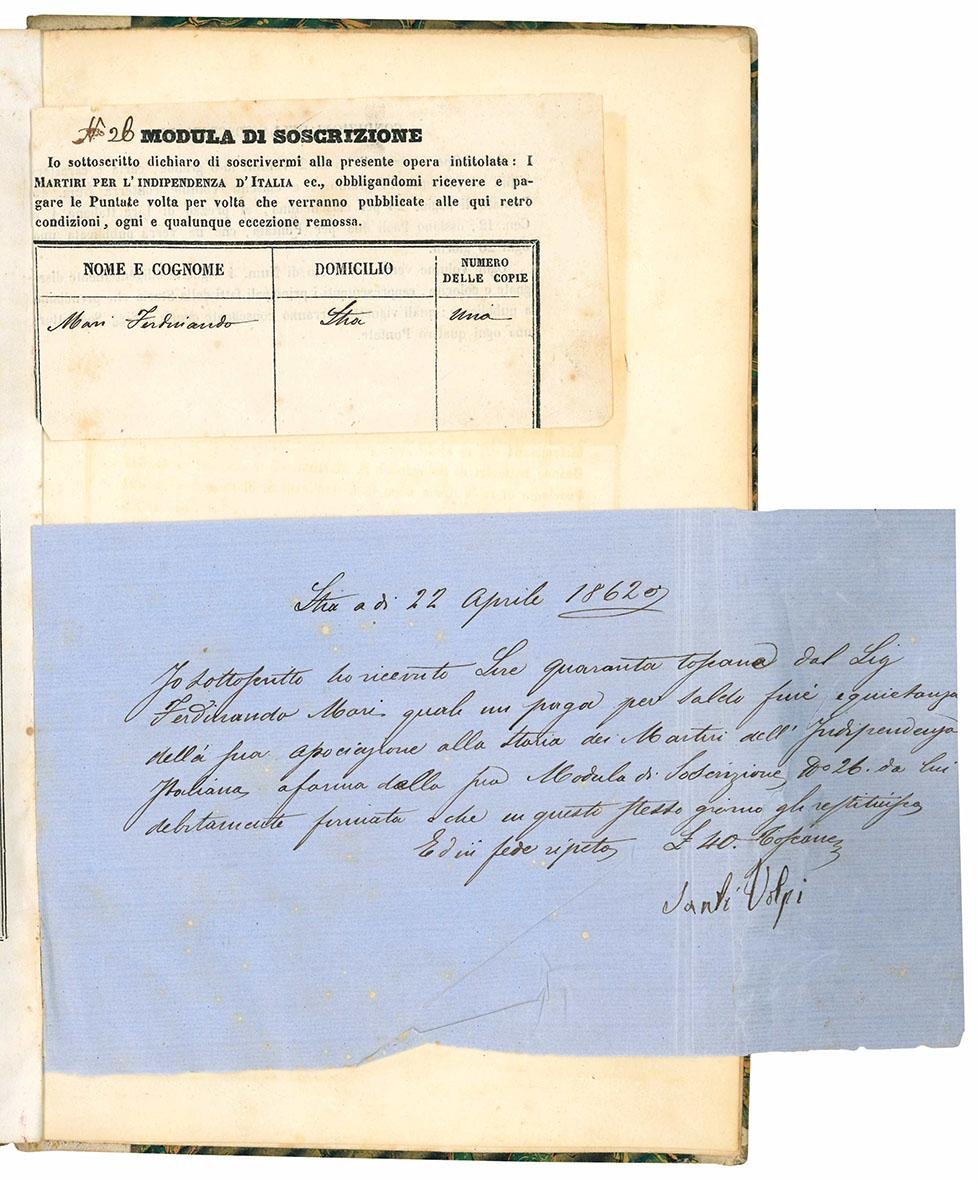 No 26 MODULA DI SOSCRIZIONE
Io sottoscritto dichiaro di soscrivermi alla presente opera intitolata: I
MARTIRI PER L'INDIPENDENZA D'ITALIA ec., obbligandomi ricevere e pa-
gare le Puntate volta per volta che verranno pubblicate alle qui retro
condizioni, ogni e qualunque eccezione remossa.
NOME E COGNOME DOMICILIO NUMERO DELLE COPIE
Mari Ferdinando Stia una
Stia a di 22 Aprile 1862
Io sottoscritto ho ricevuto Lire quaranta toscane dal Sig
Ferdinando Mari quali mi paga per saldo fine e quietanza
della sua alla Storia dei Martiri dell'Indipendenza
Italiana, a forma della sua Modula di Soscrizione, No 26. da lui
debitamente firmata che in questo stesso giorno gli
Ed in fede ripeto £ 40. Toscane
Santi Volpi